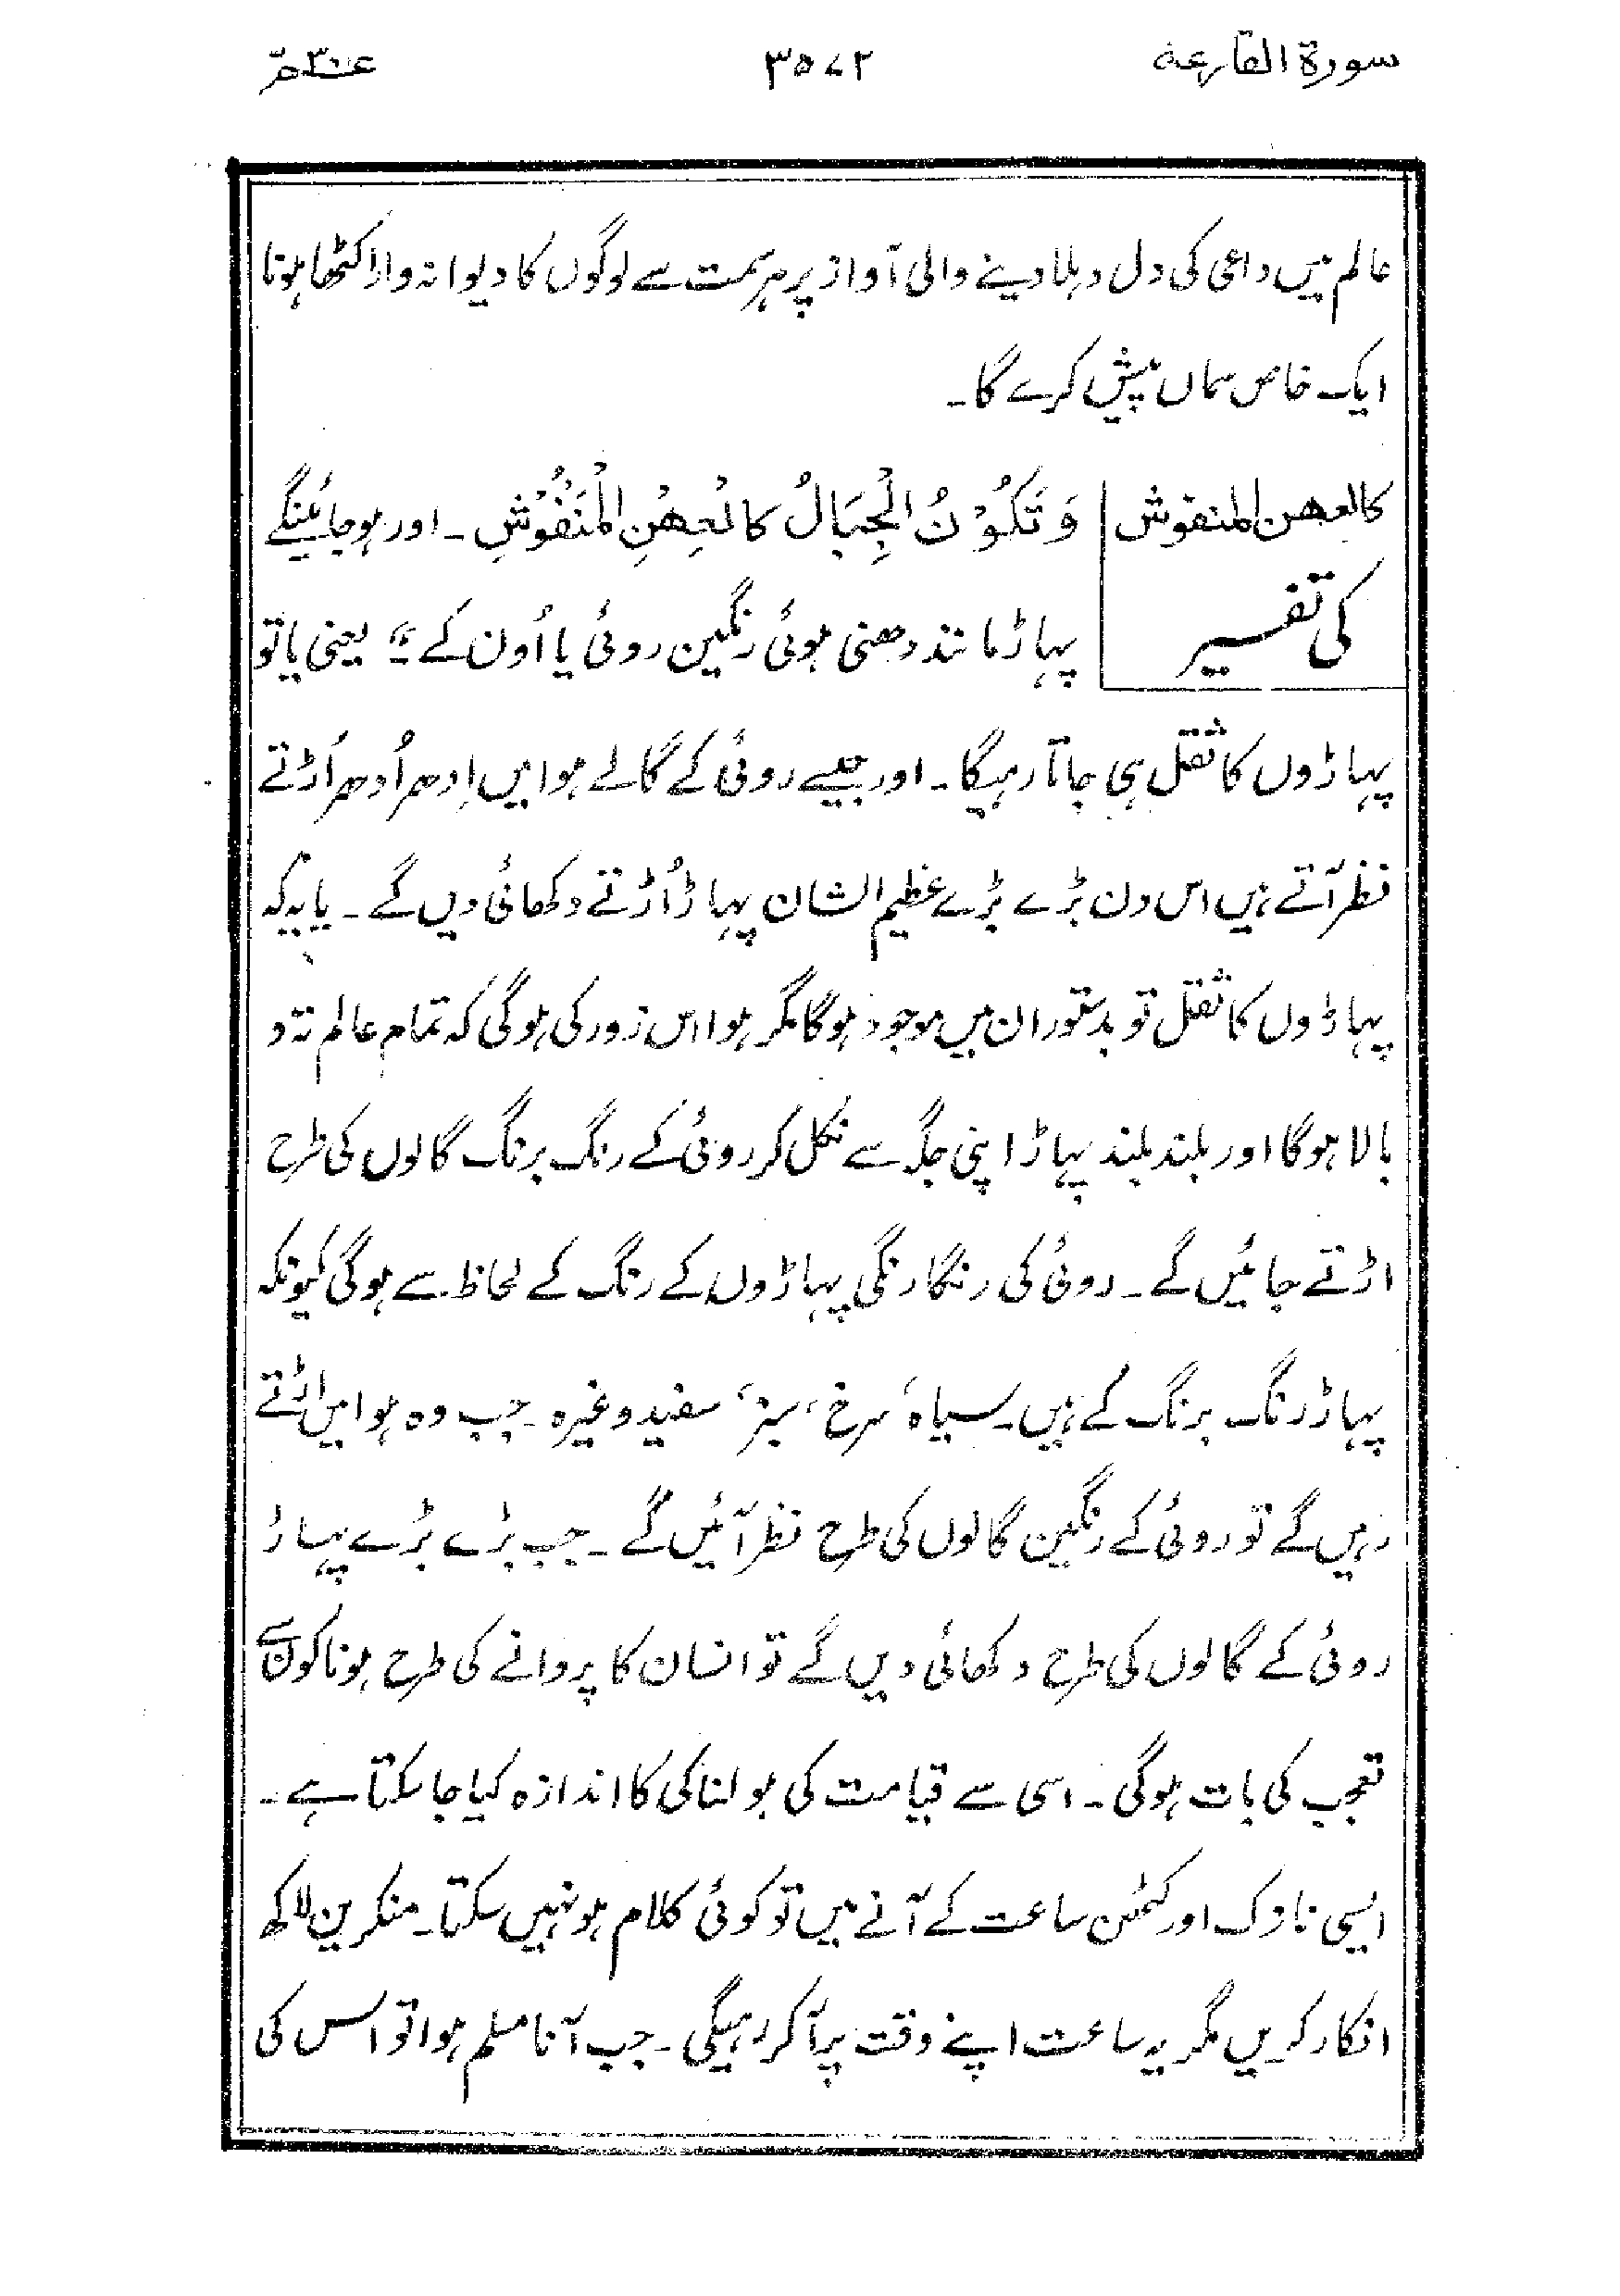 سورۃ القارعہ
۳۵۷۲
عمّ ۳۰
عالم میں داعی کی دل دہلا دینے والی آواز پر ہر سمت سے لوگوں کا دیوانہ وار اکٹھا ہونا
ایک خاص سماں پیش کرے گا۔
کالعھن المنفوش
کی تفسیر
وَتَكُوْنُ الْجِبَالُ كَالْعِهْنِ الْمَنْفُوْشِ ۔ اور ہو جائینگے
پہاڑ مانند دھنی ہوئی رنگین روئی یا اُون کے“ یعنی یا تو
پہاڑوں کا ثقل ہی جاتا رہیگا۔ اور جیسے روئی کے گالے ہوا میں اِدھر اُدھر اُڑتے
نظر آتے ہیں اس دن بڑے بڑے عظیم الشان پہاڑ اُڑتے دکھائی دیں گے ۔ یا یہ کہ
پہاڑوں کا ثقل تو بدستور ان میں موجود ہوگا مگر ہوا اس زور کی ہوگی کہ تمام عالم تہ و
بالا ہوگا اور بلند بلند پہاڑ اپنی جگہ سے نکل کر روئی کے رنگ برنگ گالوں کی طرح
اڑتے جائیں گے ۔ روئی کی رنگا رنگی پہاڑوں کے رنگ کے لحاظ سے ہوگی کیونکہ
پہاڑ رنگ برنگ کے ہیں۔ سیاہ، سرخ، سبز، سفید وغیرہ ۔ جب وہ ہوا میں اڑتے
رہیں گے تو روئی کے رنگین گالوں کی طرح نظر آئیں گے ۔ جب بڑے بڑے پہاڑ
روئی کے گالوں کی طرح دکھائی دیں گے تو انسان کا پروانے کی طرح ہونا کون سے
تعجب کی بات ہوگی ۔ اسی سے قیامت کی ہولناکی کا اندازہ کیا جا سکتا ہے ۔
ایسی نازک اور کٹھن ساعت کے آنے میں تو کوئی کلام ہو نہیں سکتا۔ منکرین لاکھ
انکار کریں مگر یہ ساعت اپنے وقت پر آکر رہیگی ۔ جب آنا مسلم ہوا تو اس کی